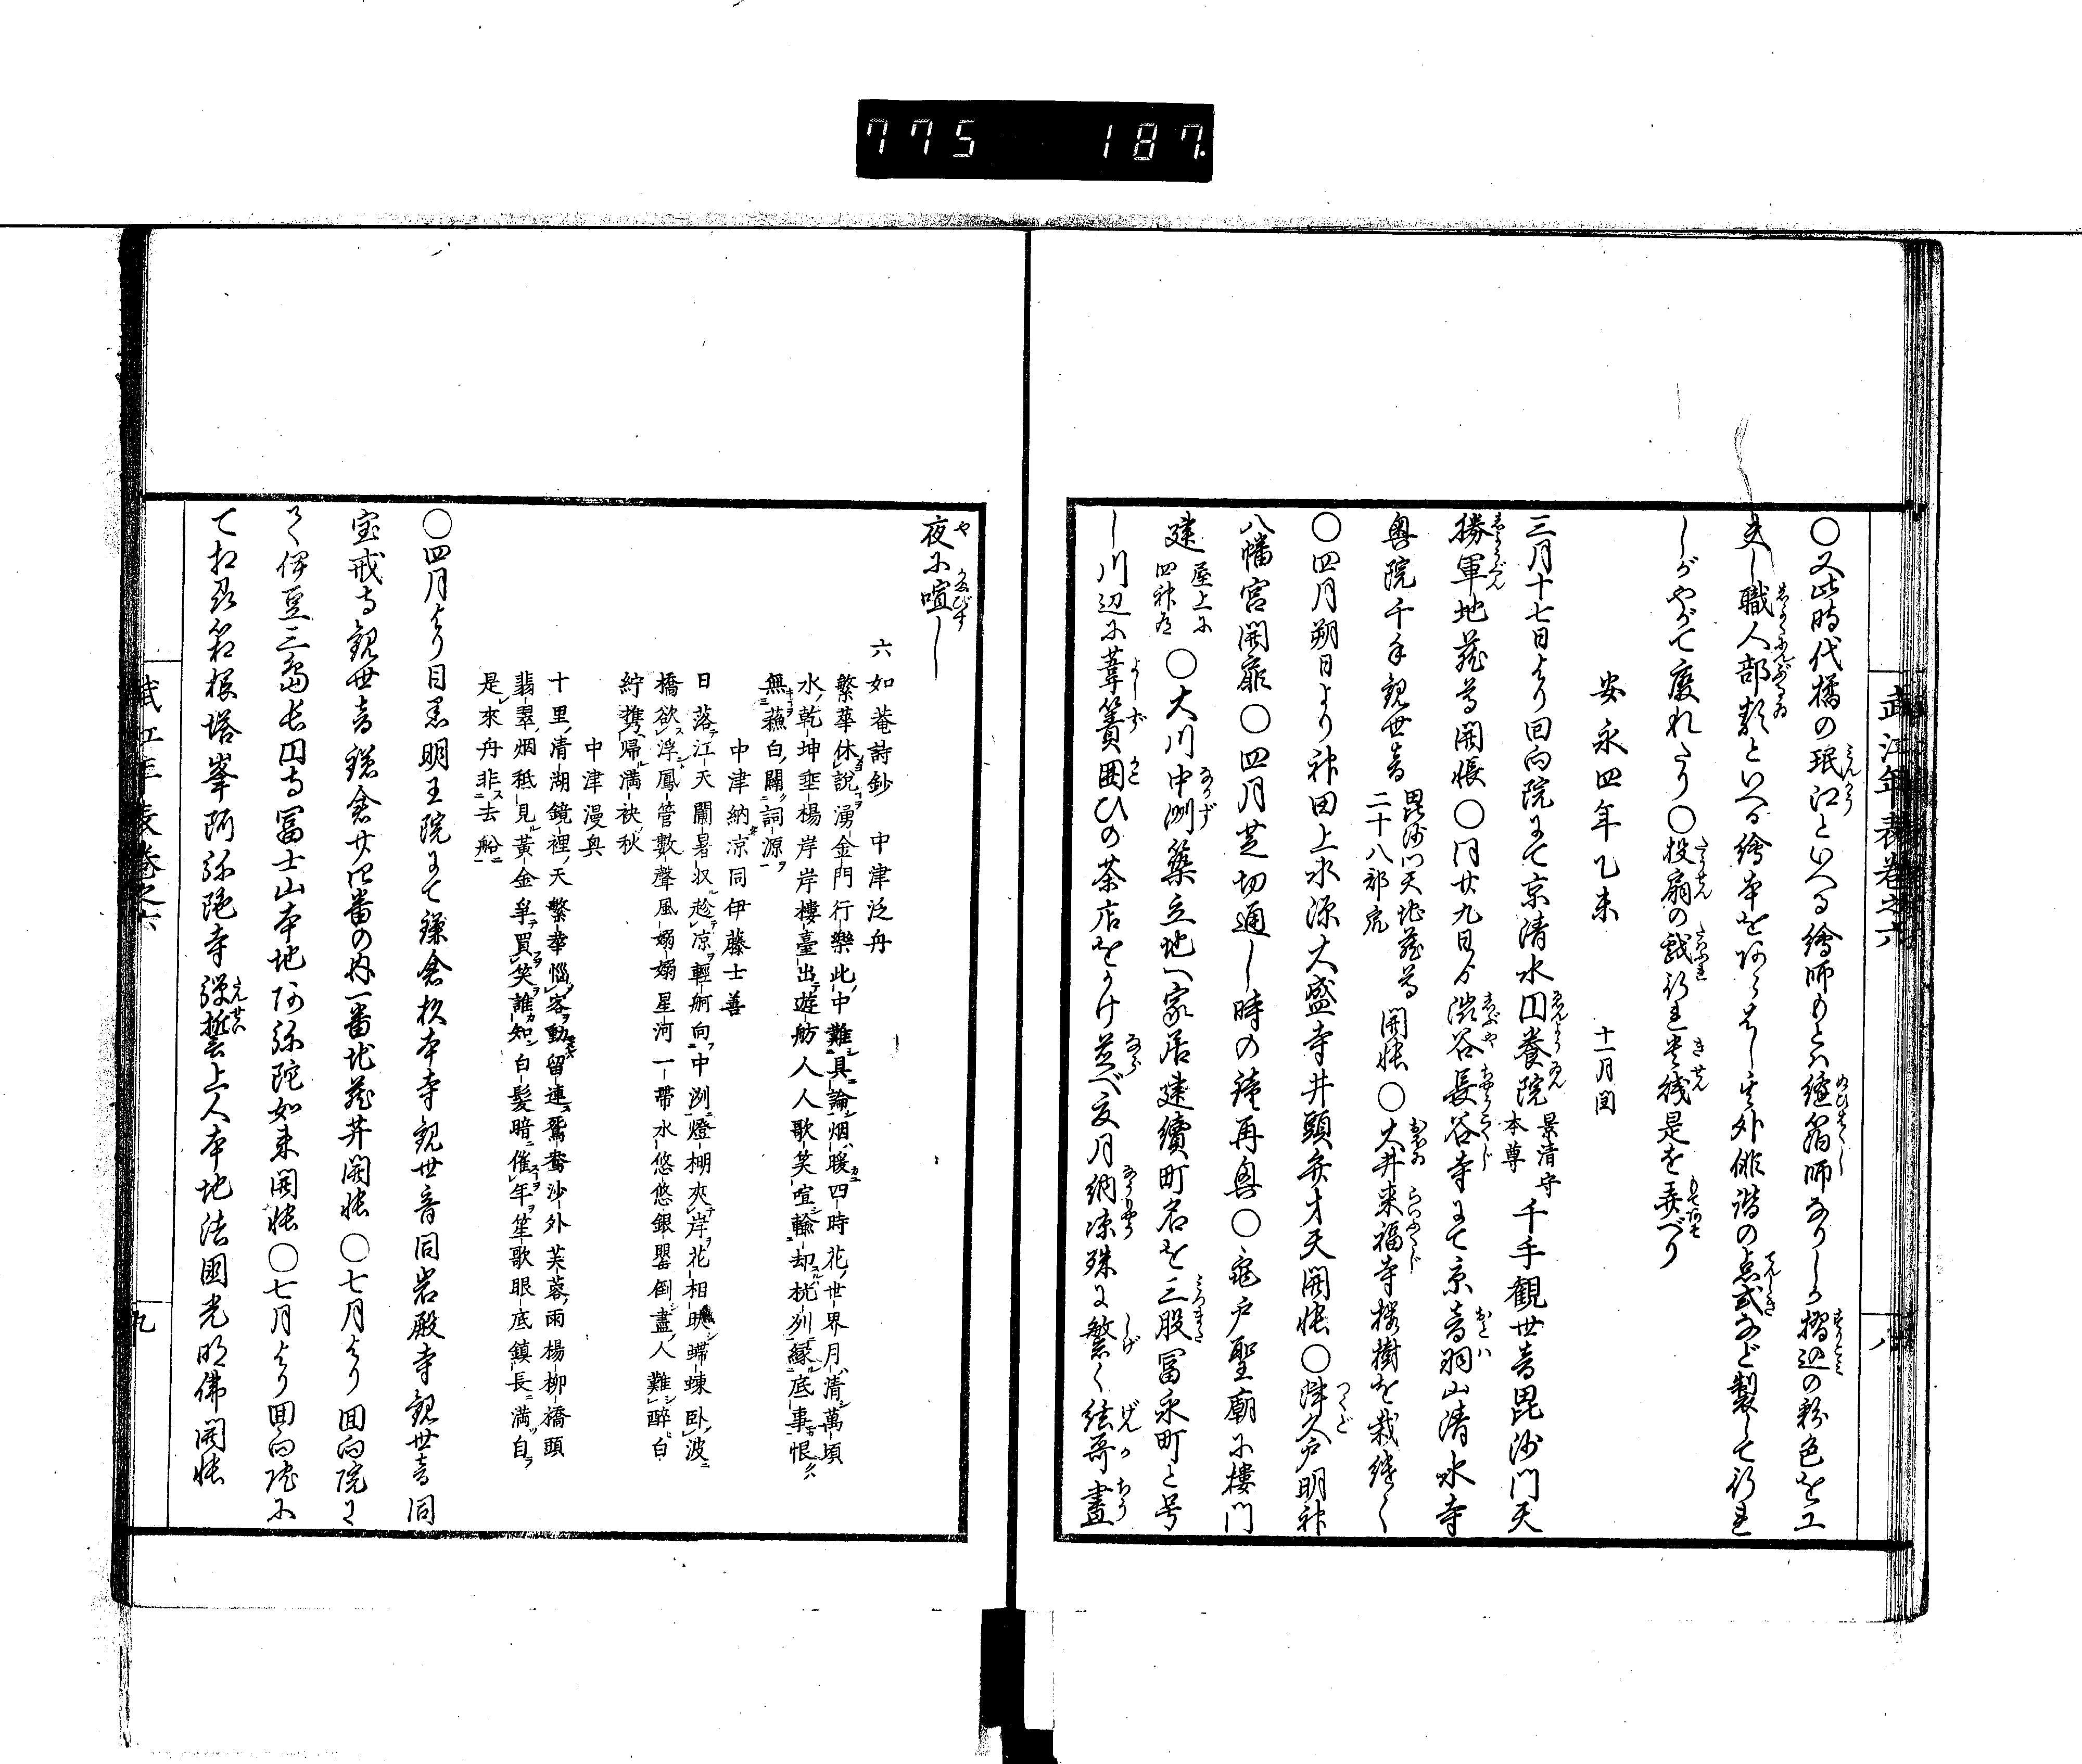 775 187
武江年表巻之六
八
〇又此時代橘の珉江といへる繪師もとハ縫箔師なりしが摺込の彩色を工
夫し職人部類といへる繪本をあらはし其外俳諧の点式など製して行れ
しがやがて廃れたり〇投扇の戯行れ貴賤是を弄べり
安永四年乙未 十一月閏
三月十七日より回向院にて京清水円養院景清守本尊千手観世音毘沙門天
勝軍地蔵尊開帳〇同廿九日より渋谷長谷寺にて京音羽山清水寺
奥院千手観世音毘沙門天地蔵尊二十八部衆開帳〇大井来福寺桜樹を栽継く
〇四月朔日より神田上水源大盛寺井頭弁才天開帳〇津久戸明神
八幡宮開扉〇四月芝切通し時の鐘再興〇亀戸聖廟に樓門
建屋上に四神有〇大川中洲築立地へ家居建續町名を三股冨永町と号
し川辺に葦簀囲ひの茶店をかけ並べ夏月納凉殊に繁く絃哥晝
夜に喧し
六如菴詩鈔 中津泛舟
繁華休說湧金門行樂此中難具論烟暖四時花世界月清萬頃
水乾坤垂楊岸岸樓臺出遊舫人人歌笑喧輸却桃列緣底事恨
無蘓白闢詞源
中津納凉同伊藤士善
日落江天闌暑収趁凉輕舸向中洲燈棚夾岸花相映蝃蝀臥波
橋欲浮鳳管數聲風嫋嫋星河一帶水悠悠銀罌倒盡人難醉白
紵携帰満袂秋
中津漫興
十里清湖鏡裡天繁華惱客動留連鴛鴦沙外芙蓉雨楊柳橋頭
翡翠烟秪見黃金爭買笑誰知白髮暗催年笙歌眼底鎮長満自
是來舟非去船
〇四月より目黒明王院にて鎌倉杉本寺観世音同岩殿寺観世音同
宝戒寺観世音鎌倉廿四番の内一番地蔵并開帳〇七月より回向院に
て伊豆三島長円寺冨士山本地阿弥陀如来開帳〇七月より回向院に
て相刕箱根塔峯阿弥陀寺弾誓上人本地法國光明佛開帳
武江年表巻之六
九